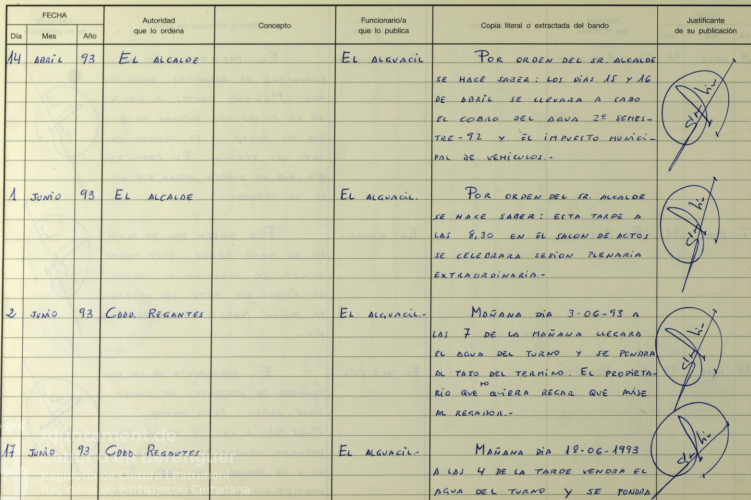 FECHA
Día Mes Año
Autoridad que lo ordena
Concepto
Funcionario/a que lo publica
Copia literal o extractada del bando
Justificante de su publicación
14 ABRIL 93 EL ALCALDE EL ALGUACIL POR ORDEN DEL SR. ALCALDE
SE HACE SABER: LOS DIAS 15 Y 16
DE ABRIL SE LLEVARA A CABO
EL COBRO DEL AGUA 2º SEMES-
TRE-92 Y EL IMPUESTO MUNICI-
PAL DE VEHICULOS.-
1 JUNIO 93 EL ALCALDE EL ALGUACIL. POR ORDEN DEL SR. ALCALDE
SE HACE SABER: ESTA TARDE A
LAS 8,30 EN EL SALON DE ACTOS
SE CELEBRARA SESION PLENARIA
EXTRAORDINARIA.-
2 JUNIO 93 CDAD. REGANTES EL ALGUACIL.- MAÑANA DIA 3-06-93 A
LAS 7 DE LA MAÑANA LLEGARA
EL AGUA DEL TURNO Y SE PONDRA
AL TAJO DEL TERMINO. EL PROPIETA-
RIO QUE NO QUIERA REGAR QUE AVISE
AL REGADOR.-
17 JUNIO 93 CDAD. REGANTES EL ALGUACIL.- MAÑANA DIA 18-06-1993
A LAS 4 DE LA TARDE VENDRA EL
AGUA DEL TURNO Y SE PONDRA
Ajuntament de
Cultura i Patrimoni
Participació Ciutadana